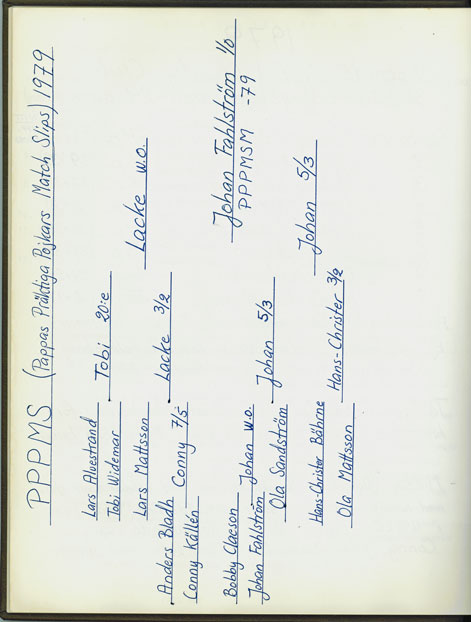 PPPMS (Pappas Präktiga Pojkars Match Slips) 1979
Lars Alvestrand
Tobi Widemar
Tobi 20:e
Lars Mattsson
Lacke w.o.
Anders Bladh
Conny Källén
Conny 7/5
Lacke 3/2
Johan Fahlström 1/0
PPPMSM -79
Bobby Claeson
Johan Fahlström
Johan w.o.
Ola Sandström
Johan 5/3
Johan 5/3
Hans-Christer Bähme
Ola Mattsson
Hans-Christer 3/2